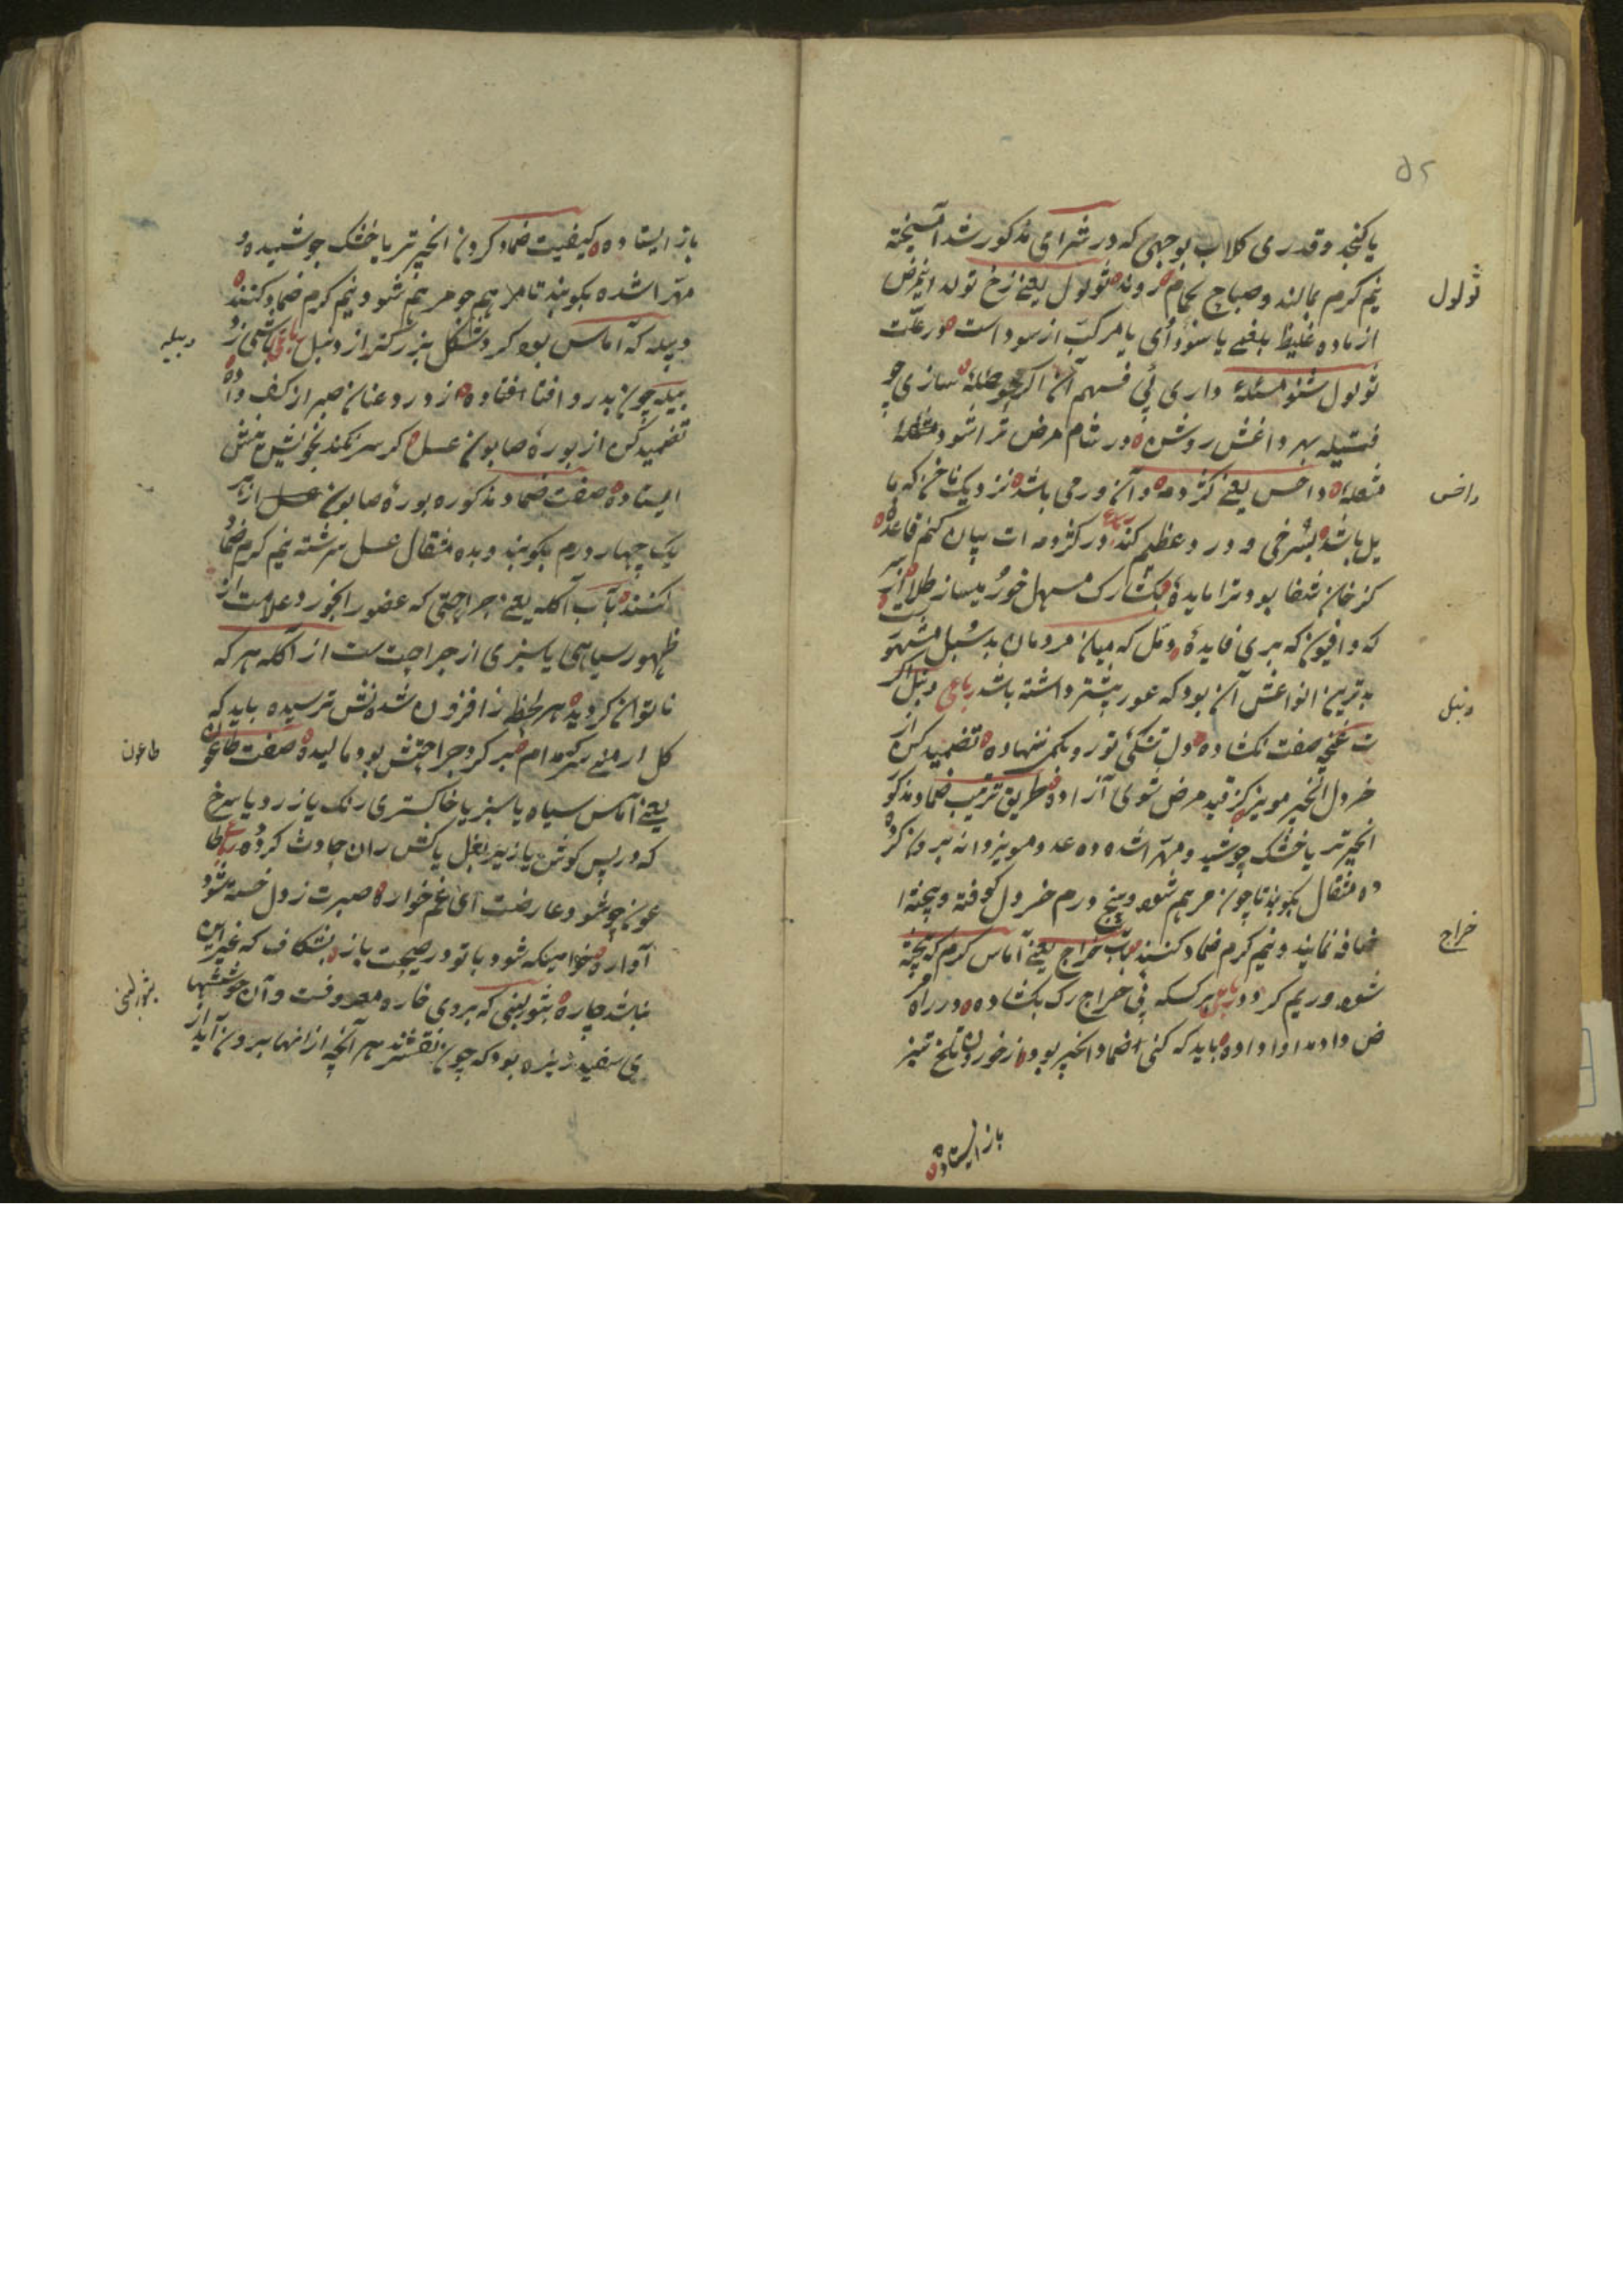 ۵۲
یا کنجد و قدری کلاب بوجهی که در شرای مذکور شد آمیخته
نیم کرم بمالند و صباح بحمام روند ثولول یعنے زخ تولد اینمرض
ثولول
از ماده غلیظ بلغمے یا سوداوی یا مرکب از سود است در علت
ثولول شنو مسئله داری پی فهم آن اکر حوصله سازی چو
فتیله بهر داغش روشن در شام مرض ترا شود مشعله
مشعله داحس یعنے کژدمه و آن ورمی باشد نزدیک ناخن که ما
داخس
یل باشد بسرخی و درد عظیم کند در کژدمه ات بیان کنم قاعده
کز خان شفا بود ترا مایده بکشا رک مسهل خور میساز طلا از سر
که و افیون که بری فایده دمل که میان مردمان بدنبل مشهور ست
بدترین انواعش آن بود که غور بیشتر داشته باشد رباعی دنبل اکر
دنبل
ت غنچه صفت نکشاده دل تنکئ تو رو بکمی ننهاده تضمید کن از
خردل انجیر مویز کز قید مرض شوی آزاده طریق ترتیب ضماد مذکور
انجیر تر یا خشک جوشید و مهرا شده ده عدد مویز دانه بیرون کرده
ده مثقال بکوبند تا چون مرهم شود و پنج درم خردل کوفته و بیخته ا
ضافه نمایند و نیم کرم ضماد کنند باب خراج یعنے آماس کرم که پخته
خراج
شود و ریم کرد رباعی هر کسکه پی خراج رک بکشاده در راه مر
ض داد مداوا داده باید که کنی ضماد انجیر بود از خوردن تلخ تیز
باز ایستاده
باز ایستاده کیفیت ضماد کردن انجیر تر یا خشک جوشیده و
مهرا شده بکوبند تا مرهم شود و نیم کرم ضماد کنند
دبیله که آماس بود کرد شکل بزرکتر از دنبل رباعی باشی ز د
دبیله
بیله چون بدرد افتاده از درد عنان صبر از کف داده
تضمید کن از بوره صابون عسل کر سر نکند بخویش منش
ایستاده صفت ضماد مذکوره بوره صابون عسل از هر
یک چهار درم بکوبند و بده مثقال عسل سرشته نیم کرم ضماد
کنند باب آکله یعنے جراحتی که عضو را بخورد علامت از
ظهور سیاهی یا سبزی از جراحت ست از آکله هر که
ناتوان کردیده هر لحظه ز افزون شدنش ترسیده باید که
کل ارمنے سرکه مدام صبر کرد جراحتش بود مالیده صفت طاعون
طاعون
یعنے آماس سیاه یا سبز یا خاکستری رنک یا زرد یا سرخ
که در پس کوش یا زیر بغل یا کش ران حادث کردد رباعی طا
عون چو شود عارضت ای غم خواره صبرت ز دل خسته شود
آواره خواهی که شود با تو در صحبت باز بشکاف که غیر این
نباشد چاره بثور لبنی که بر وی خاره معروفست و آن جوششها
بثور لبنی
ی سفید ریزه بود که چون بفشرند هر آنچه از انها بیرون آید از